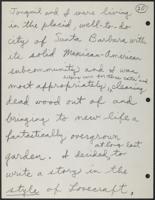 20
Joquel and I were living
in the placid, well-to-do
city of Santa Barbara with
its solid Mexican-American
subcommunity and I was
most appropriately, cleaning
dead wood out of and
bringing to new life a
fantastically overgrown
at long last
garden. I decided, to
write a story in the
style of Lovecraft,